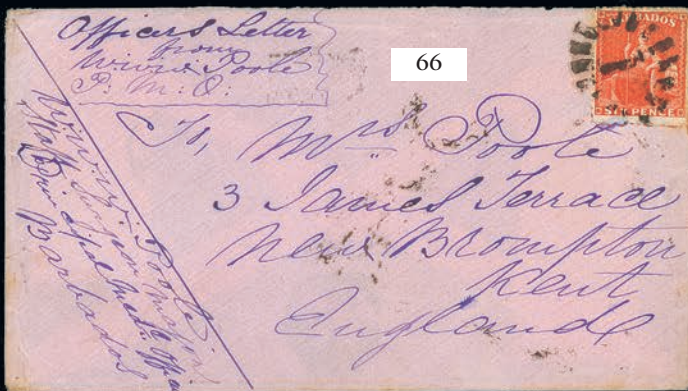 Officers Letter
from
Poole
P. M. O.
66
BARBADOS
SIX PENCE
To, Mrs. Poole
3 James Terrace
New Brompton
Kent
England
Poole
Staff Surgeon Major
Principal Medl. Officer
Barbados